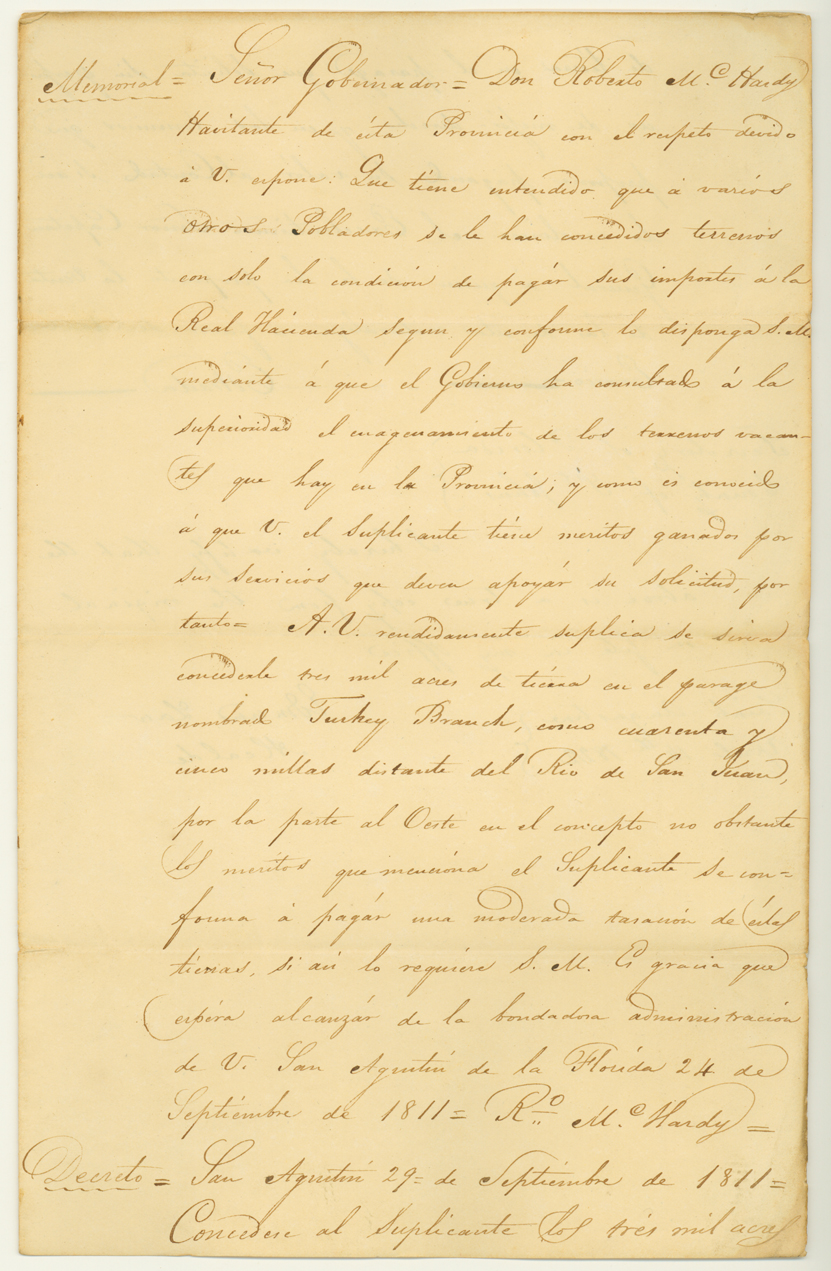 Memorial = Señor Gobernador = Don Roberto McHardy
Havitante de ésta Provinciá con el respeto devido
á V. espone: Que tiéne entendido que á variós
otros Pobladores se le han concedidos terrenos
con solo la condición de pagár sus importes á la
Real Haciénda segun y conforme lo disponga S. M.
mediánte á que el Gobierno ha consultado á la
superioridad el enagenamiento de los terrenos vacan-
tes que hay en la Provinciá; y como es conocido
á que V. el Suplicante tiéne meritos ganados por
sus servicios que deven apoyár su solicitud, por
tanto = A. V. rendidamente suplica se sirva
concederle tres mil acres de tiérra en el parage
nombrado Turkey Branch, como cuarenta y
cinco millas distante del Rio de San Juan,
por la parte al Oeste en el concepto no obstante
los meritos que menciona el Suplicante se con=
forma á pagár una moderada tasación de éstas
tiérras, si asi lo requiére S. M. Es gracia que
espéra alcanzár de la bondadosa administración
de V. San Agustin de la Florida 24 de
Septiémbre de 1811 = Ro McHardy =
Decreto = San Agustin 29 = de Septiémbre de 1811 =
Concedese al Suplicante los trés mil acres